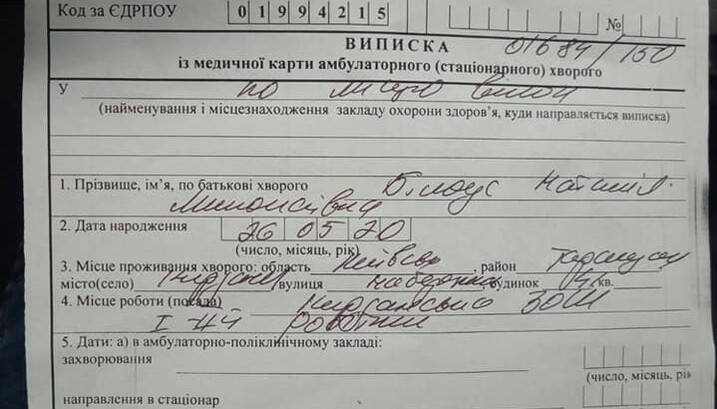 Код за ЄДРПОУ 0 1 9 9 4 2 1 5 №
ВИПИСКА 01684/150
із медичної карти амбулаторного (стаціонарного) хворого
У по місцю вимоги
(найменування і місцезнаходження закладу охорони здоров'я, куди направляється виписка)
1. Прізвище, ім'я, по батькові хворого Білоус Наталія
Миколаївна
2. Дата народження 26 05 70
(число, місяць, рік)
3. Місце проживання хворого: область Київська, район
місто(село) вулиця будинок 14, кв.
4. Місце роботи (посада) ЗОШ
I
5. Дати: а) в амбулаторно-поліклінічному закладі:
захворювання
(число, місяць, рік
направлення в стаціонар